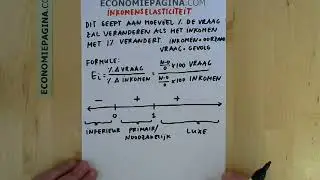 ECONOMIEPAGINA.COM
INKOMENSELASTICITEIT
DIT GEEFT AAN HOEVEEL % DE VRAAG
ZAL VERANDEREN ALS HET INKOMEN
MET 1% VERANDERT. INKOMEN = OORZAAK
VRAAG = GEVOLG
FORMULE:
Ei = % Δ VRAAG / % Δ INKOMEN = N-O/O x100 VRAAG / N-O/O x100 INKOMEN
- + +
0 1
INFERIEUR PRIMAIR/ LUXE
NOODZAKELIJK
ECONOMIEPAGINA.COM